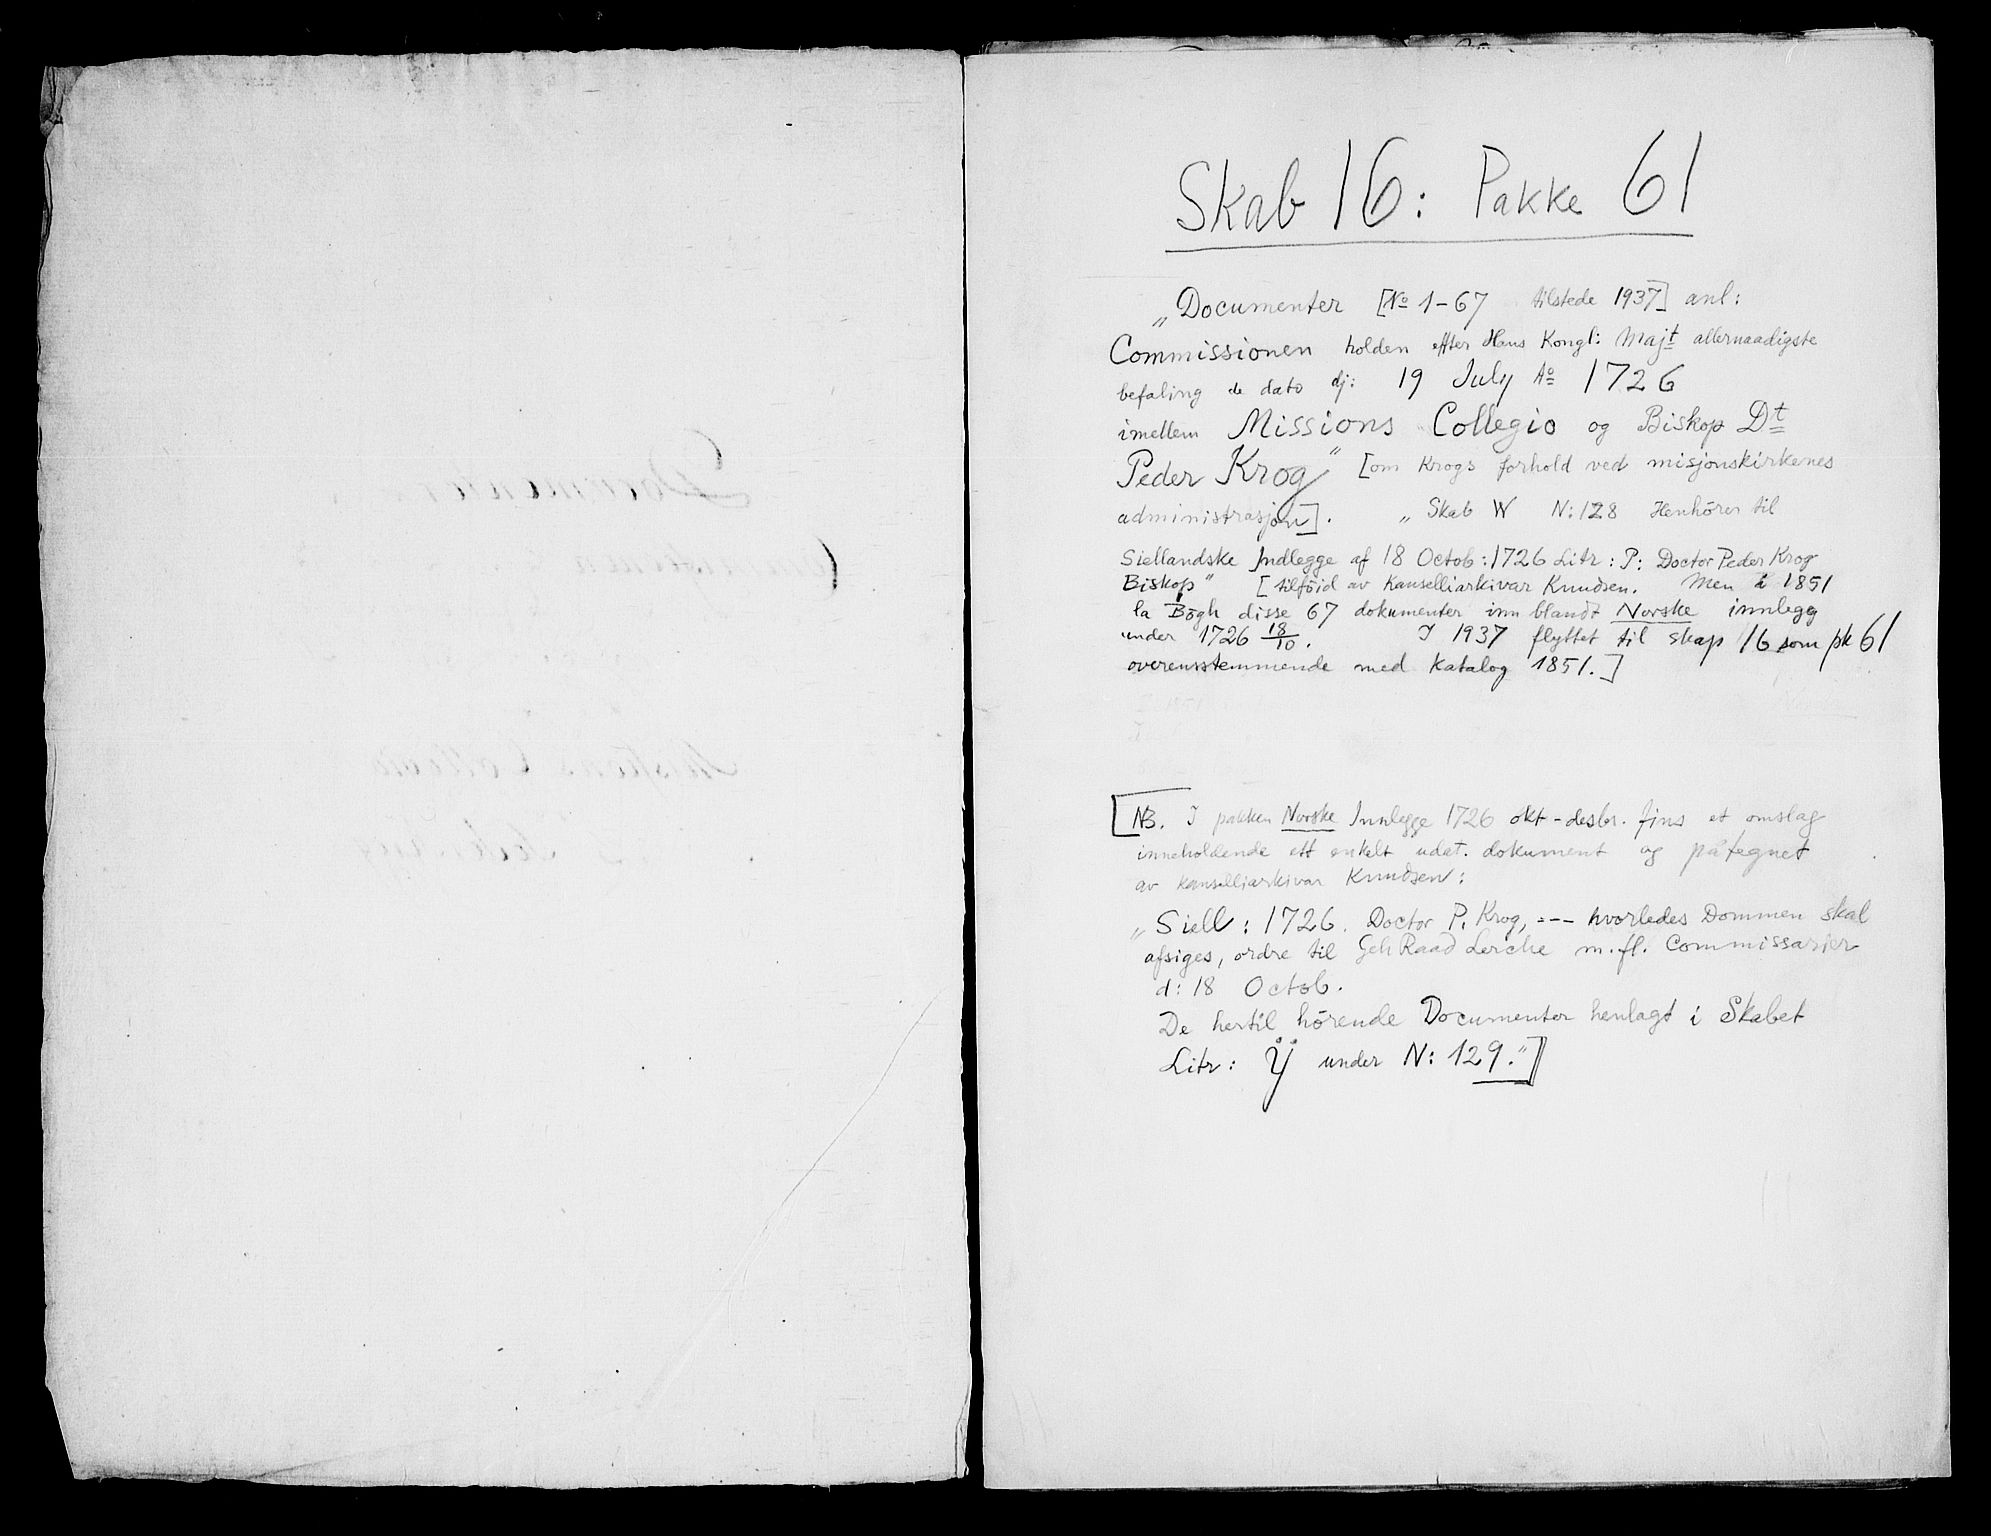 Skab 16: Pakke 61
„Documenter [No 1-67 tilstede 1937] anl:
Commissionen holden efter Hans Kongl: Majt allernaadigste
befaling de dato dj: 19 July Ao 1726
imellem Missions Collegio og Biskop Dt
Peder Krog" [om Krogs forhold ved misjonskirkenes
administrasjon]. „Skab W N: 128 Henhörer til
Siellandske Indlegge af 18 Octob: 1726 Litr: P: Doctor Peder Krog
Biskop" [tilföid av Kanselliarkivar Knudsen. Men i 1851
la Bögh disse 67 dokumenter inn blandt Norske innlegg
under 1726 18/10. I 1937 flyttet til skap 16 som pk 61
overensstemmende med Katalog 1851.]
[NB. I pakken Norske Innlegge 1726 okt-desbr. fins et omslag
inneholdende ett enkelt udat. dokument og påtegnet
av kanselliarkivar Knudsen:
„Siell: 1726. Doctor P. Krog, --- hvorledes Dommen skal
afsiges, ordre til Geh Raad Lerche m.fl. Commissarier
d: 18 Octob.
De hertil hörende Documenter henlagt i Skabet
Litr: ÿ under N: 129."]